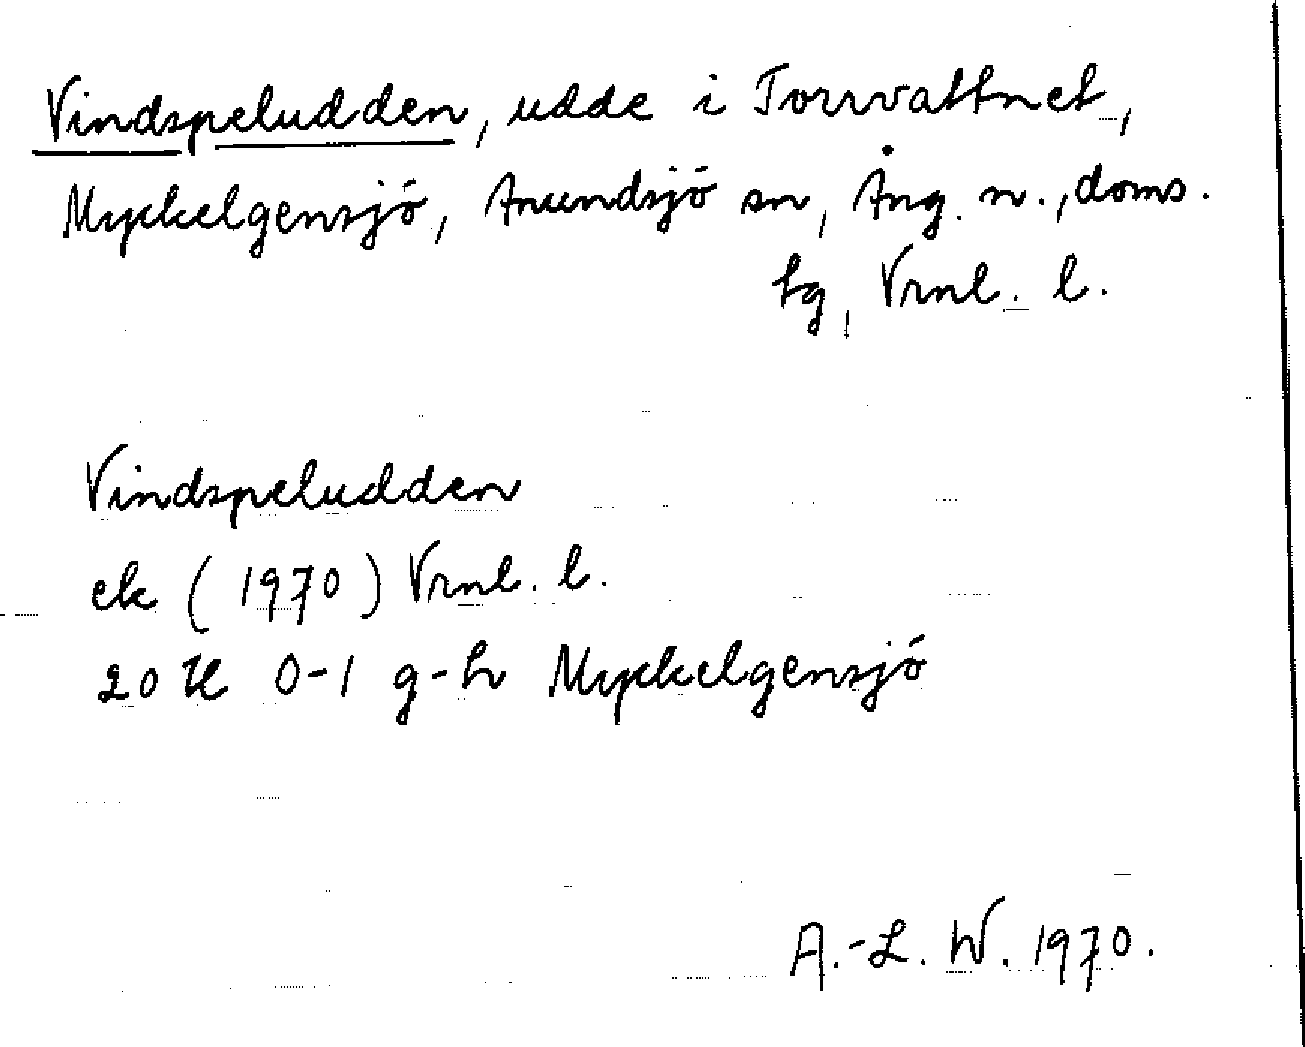 Vindspeludden, udde i Torrvattnet,
Myckelgensjö, Anundsjö sn, Ång. n., doms.
tg, Vrnl. l.
Vindspeludden
ek (1970) Vrnl. l.
20 H 0-1 g-h Myckelgensjö
A.-L. W. 1970.